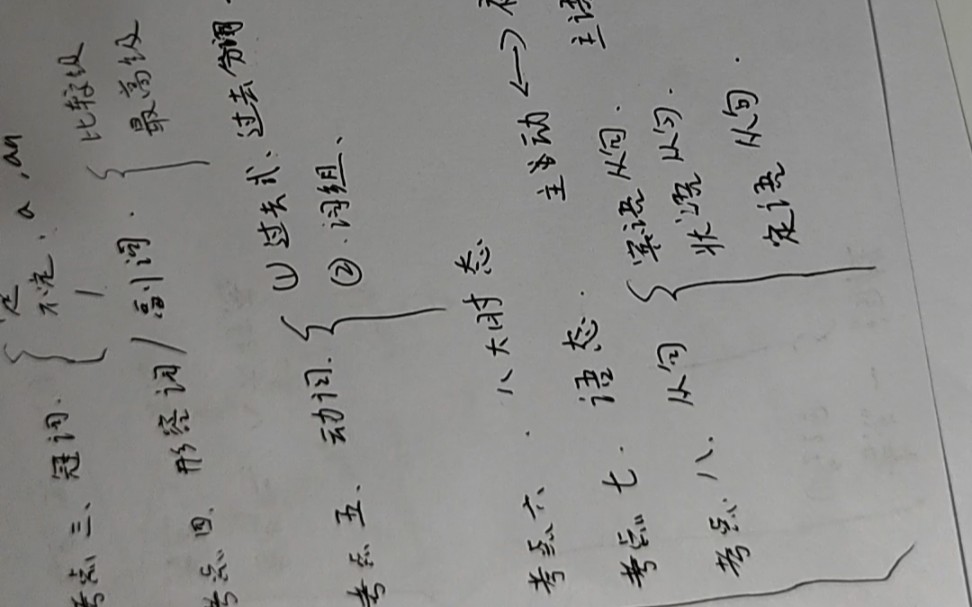 考点三、冠词. 
不定: a, an
/
考点四、形容词/副词.
比较级
最高级
考点五、动词.
① 过去式、过去分词.
② 词组、
考点六. 八大时态
考点七 语态. 主动 ←→
主语
考点八、从句
宾语从句.
状语从句.
定语从句.